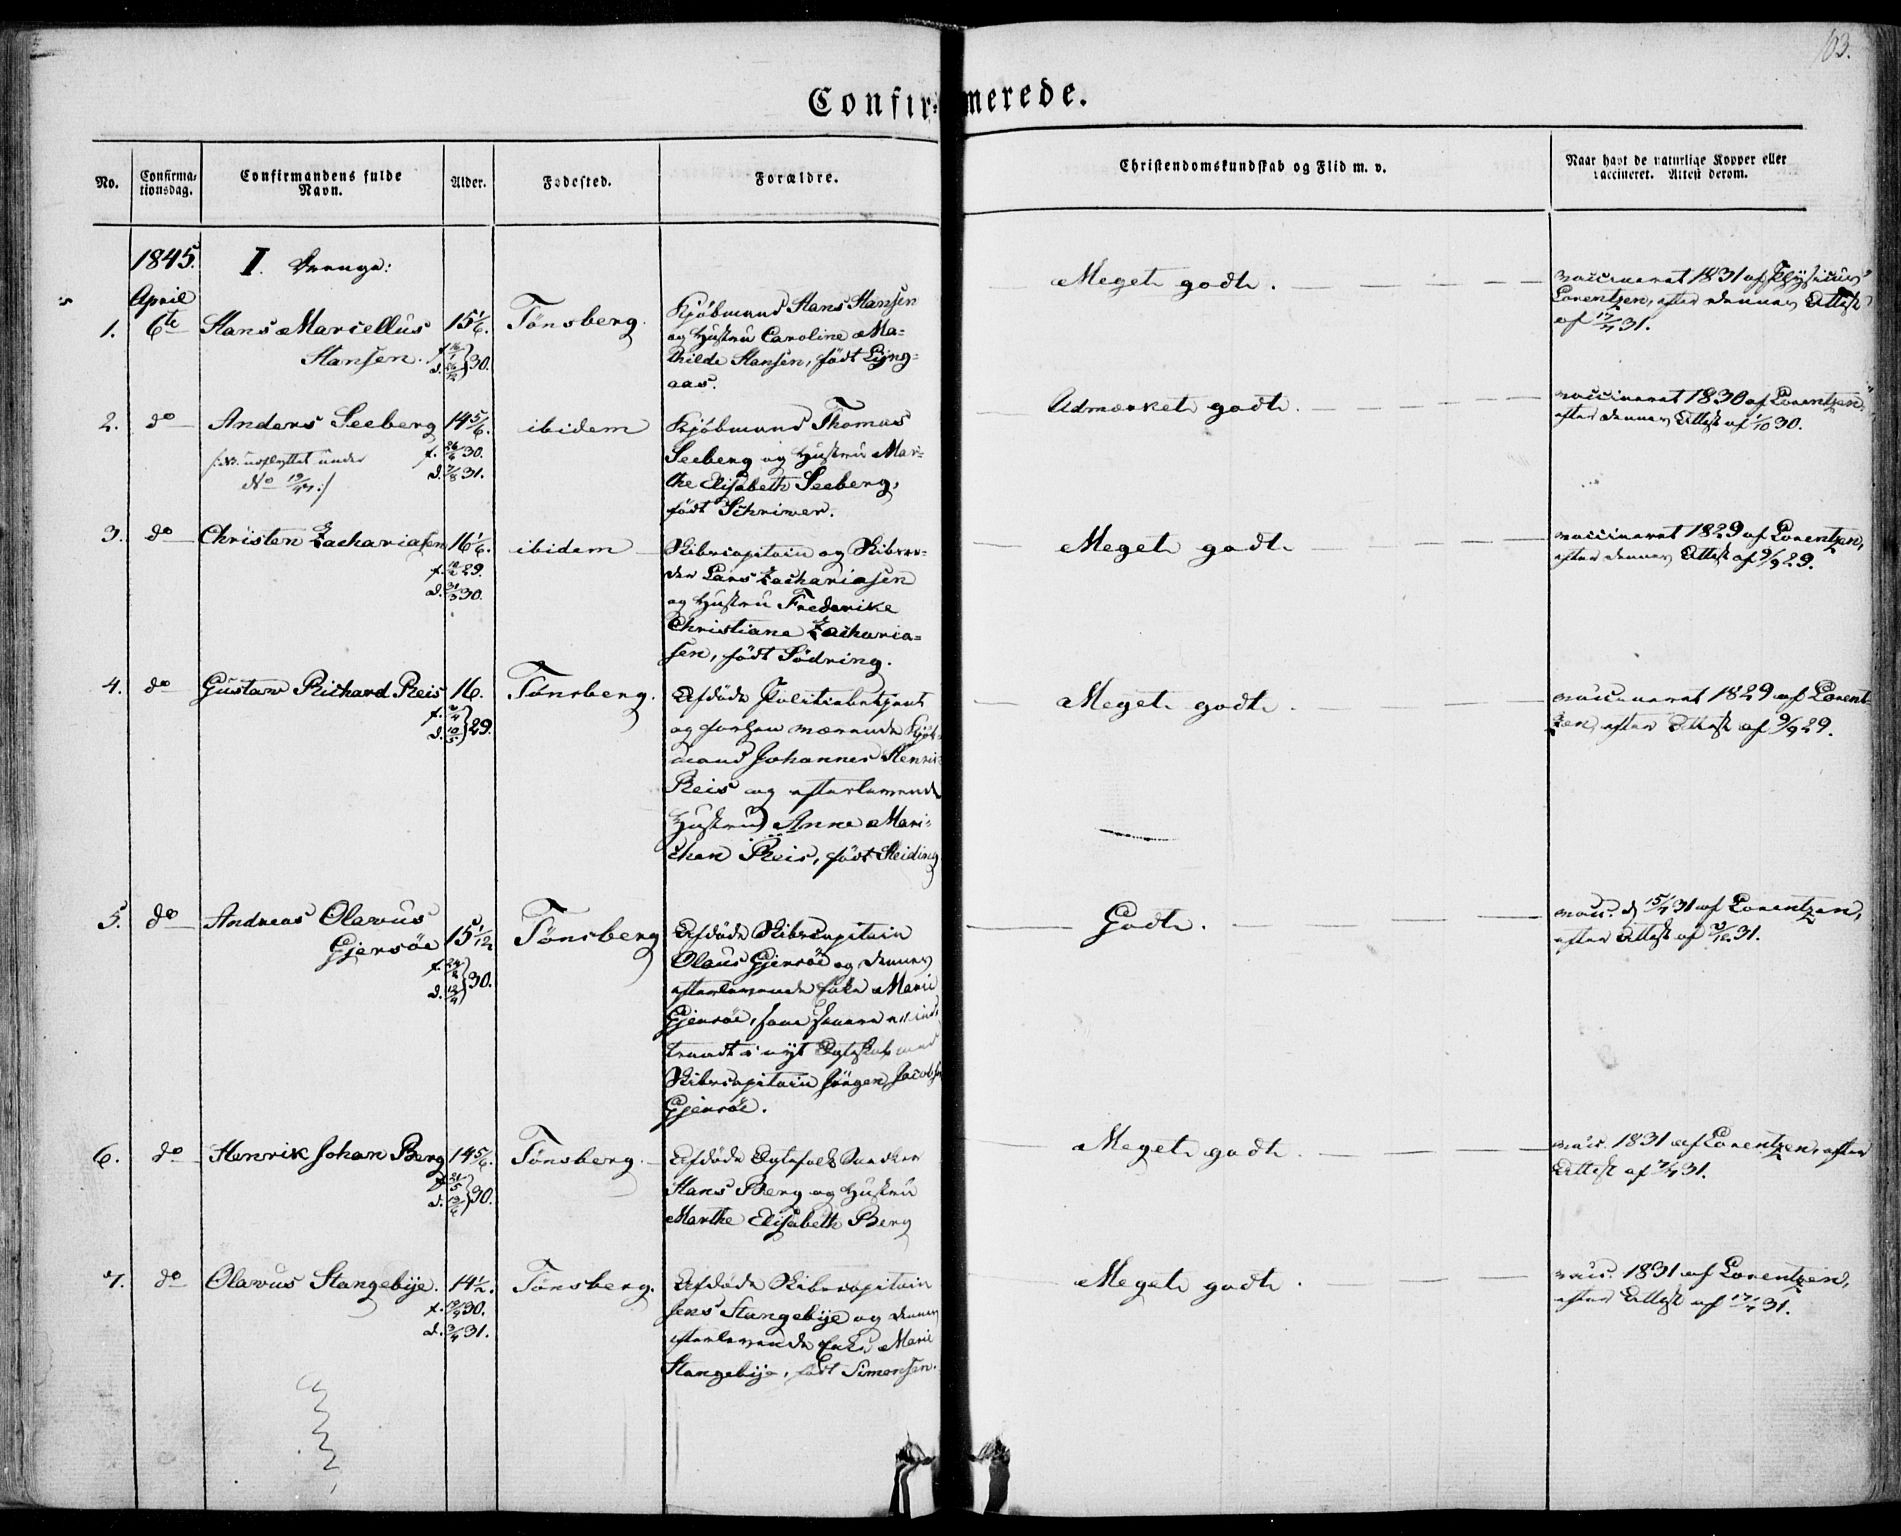 103.
Confir- merede.
No.
Confirma-
tionsdag.
Confirmandens fulde
Navn.
Alder.
Fødested.
Forældre.
Christendomskundskab og Flid m. v.
Naar havt de naturlige Kopper eller
vaccineret. Attest derom.
1845.
I. Drenge:
April
1. 6te Hans Marcellus
Hansen.
15 1/6.
30.
Tönsberg.
Kjöbmand Hans Hansen
og Hustru Caroline Ma-
thilde Hansen, född Lyng-
aas.
Meget godt.
vaccineret 1831 af Physicus
Lorentzen, efter dennes Attest
af 17/7 31.
2. do Anders Seeberg
/: NB. udflyttet under
No 19/47 :/
14 5/6.
f. 26/4 30.
d. 7/8 31.
ibidem
Kjöbmand Thomas
Seeberg og Hustru Mar-
the Elisabeth Seeberg,
född Schriwer.
Udmærket godt.
vaccineret 1830 af Lorentzen,
efter dennes Attest af 1/10 30.
3. do Christen Zachariasen
16 1/6.
29.
d. 31/3 30.
ibidem
Skibscapitain og Skibsre-
der Lars Zachariasen
og Hustru Frederike
Christiane Zacharia-
sen, född Södring.
Meget godt
vaccineret 1829 af Lorentzen,
efter dennes Attest af 9/9 29.
4. do Gustav Richard Reis
16.
29.
Tönsberg.
Afdöde Politiebetjent
og forhen værende Kjöb-
mand Johannes Henrik
Reis og efterlevende
Hustru Anne Mari-
chen Reis, född Heiding
Meget godt
vaccineret 1829 af Lorent-
zen, efter Attest af 9/9 29.
5. do Andreas Olavus
Gjersöe
15 1/12
30.
Tönsberg
Afdöde Skibscapitain
Olaus Gjersöe og dennes
efterlevende Enke Marie
Gjersöe, som senere er ind-
traadt i nyt Ægteskab med
Skibscapitain Jörgen Jacobsen
Gjersöe.
Godt.
vacc. d. 15/7 31 af Lorentzen,
efter Attest af 31.
6. do Henrik Johan Berg
14 5/6.
30.
Tönsberg.
Afdöde Ægtefolk Snedker
Hans Berg og Hustru
Marthe Elisabeth Berg
Meget godt
vacc. 1831 af Lorentzen, efter
Attest af 31.
7. do Olavus Stangebye.
14 1/2.
30.
d. 3/4 31.
Tönsberg.
Afdöde Skibscapitain
Jens Stangebye og dennes
efterlevende Enke Marie
Stangebye, född Simonsen.
Meget godt
vacc. 1831 af Lorentzen,
efter Attest af 17/7 31.